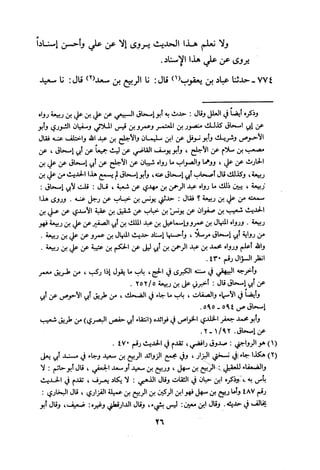 ولا نعلم هذا الحديث يروى إلا عن علي وأحسن إسناداً
يروى عن علي هذا الإسناد.
٧٧٤ ـ حدثنا عباد بن يعقوب(١) قال: نا الربيع بن سعد(٢) قال: نا سعيد
وذكره أيضاً في العلل وقال: حدث به أبو إسحاق السبيعي عن علي بن علي بن ربيعة رواه
عن أبي إسحاق كذلك منصور بن المعتمر وعمرو بن قيس الملائي وسفيان الثوري وأبو
الأحوص وشريك وأبو نوفل عن ابن سليمان والأجلح بن عبد الله واختلف عنه فقال
مصعب بن سلام عن الأجلح، وأبو يوسف القاضي عن ليث جميعاً عن أبي إسحاق، عن
الحارث عن علي، ووهما والصواب ما رواه شيبان عن الأجلح عن أبي إسحاق عن علي بن
ربيعة، وكذلك قال أصحاب أبي إسحاق عنه، وأبو إسحاق لم يسمع هذا الحديث من علي بن
ربيعة، يبين ذلك ما رواه عبد الرحمن بن مهدي عن شعبة، قال: قلت لأبي إسحاق:
سمعته من علي بن ربيعة؟ فقال: حدثني يونس بن خباب عن رجل عنه. وروى هذا
الحديث شعيب بن صفوان عن يونس بن خباب عن شقيق بن عقبة الأسدي عن علي بن
ربيعة. ورواه المنهال بن عمرو وإسماعيل بن عبد الملك بن أبي الصفير عن علي بن ربيعة فهو
من رواية أبي إسحاق مرسلاً، وأحسنها إسناد حديث المنهال بن عمرو عن علي بن ربيعة.
والله أعلم ورواه محمد بن عبد الرحمن بن أبي ليلى عن الحكم بن عتيبة عن علي بن ربيعة.
انظر السؤال رقم ٤٣٠.
وأخرجه البيهقي في سننه الكبرى في الحج، باب ما يقول إذا ركب، من طريق معمر
عن أبي إسحاق قال: أخبرني علي بن ربيعة ٢٥٢/٥
وأيضاً في الأسماء والصفات، باب ما جاء في الضحك، من طريق أبي الأحوص عن أبي
إسحاق ص ٥٩٤ ـ ٥٩٥.
وأبو محمد جعفر الخلدي الخواص في فوائده (انتقاء أبي حفص البصري) من طريق شعيب
عن إسحاق. ١/٩٢ ـ ٢.
(١) هو الرواجني: صدوق رافضي، تقدم في الحديث رقم ٤٧٠.
(٢) هكذا جاء في نسختي البزار، وفي مجمع الزوائد الربيع بن سعيد وجاء في مسند أبي يعلى
والضعفاء للعقيلي: الربيع بن سهل، وربيع بن سعيد أو سعد الجعفي، قال أبو حاتم: لا
بأس به، وذكره ابن حبان في الثقات وقال الذهبي: لا يكاد يعرف، تقدم في الحديث
رقم ٤٨٧ وأما ربيع بن سهل فهو ابن الركين بن الربيع بن عميلة الفزاري، قال البخاري:
يخالف في حديثه. وقال ابن معين: ليس بشيء، وقال الدارقطني وغيره: ضعيف، وقال أبو
٢٦